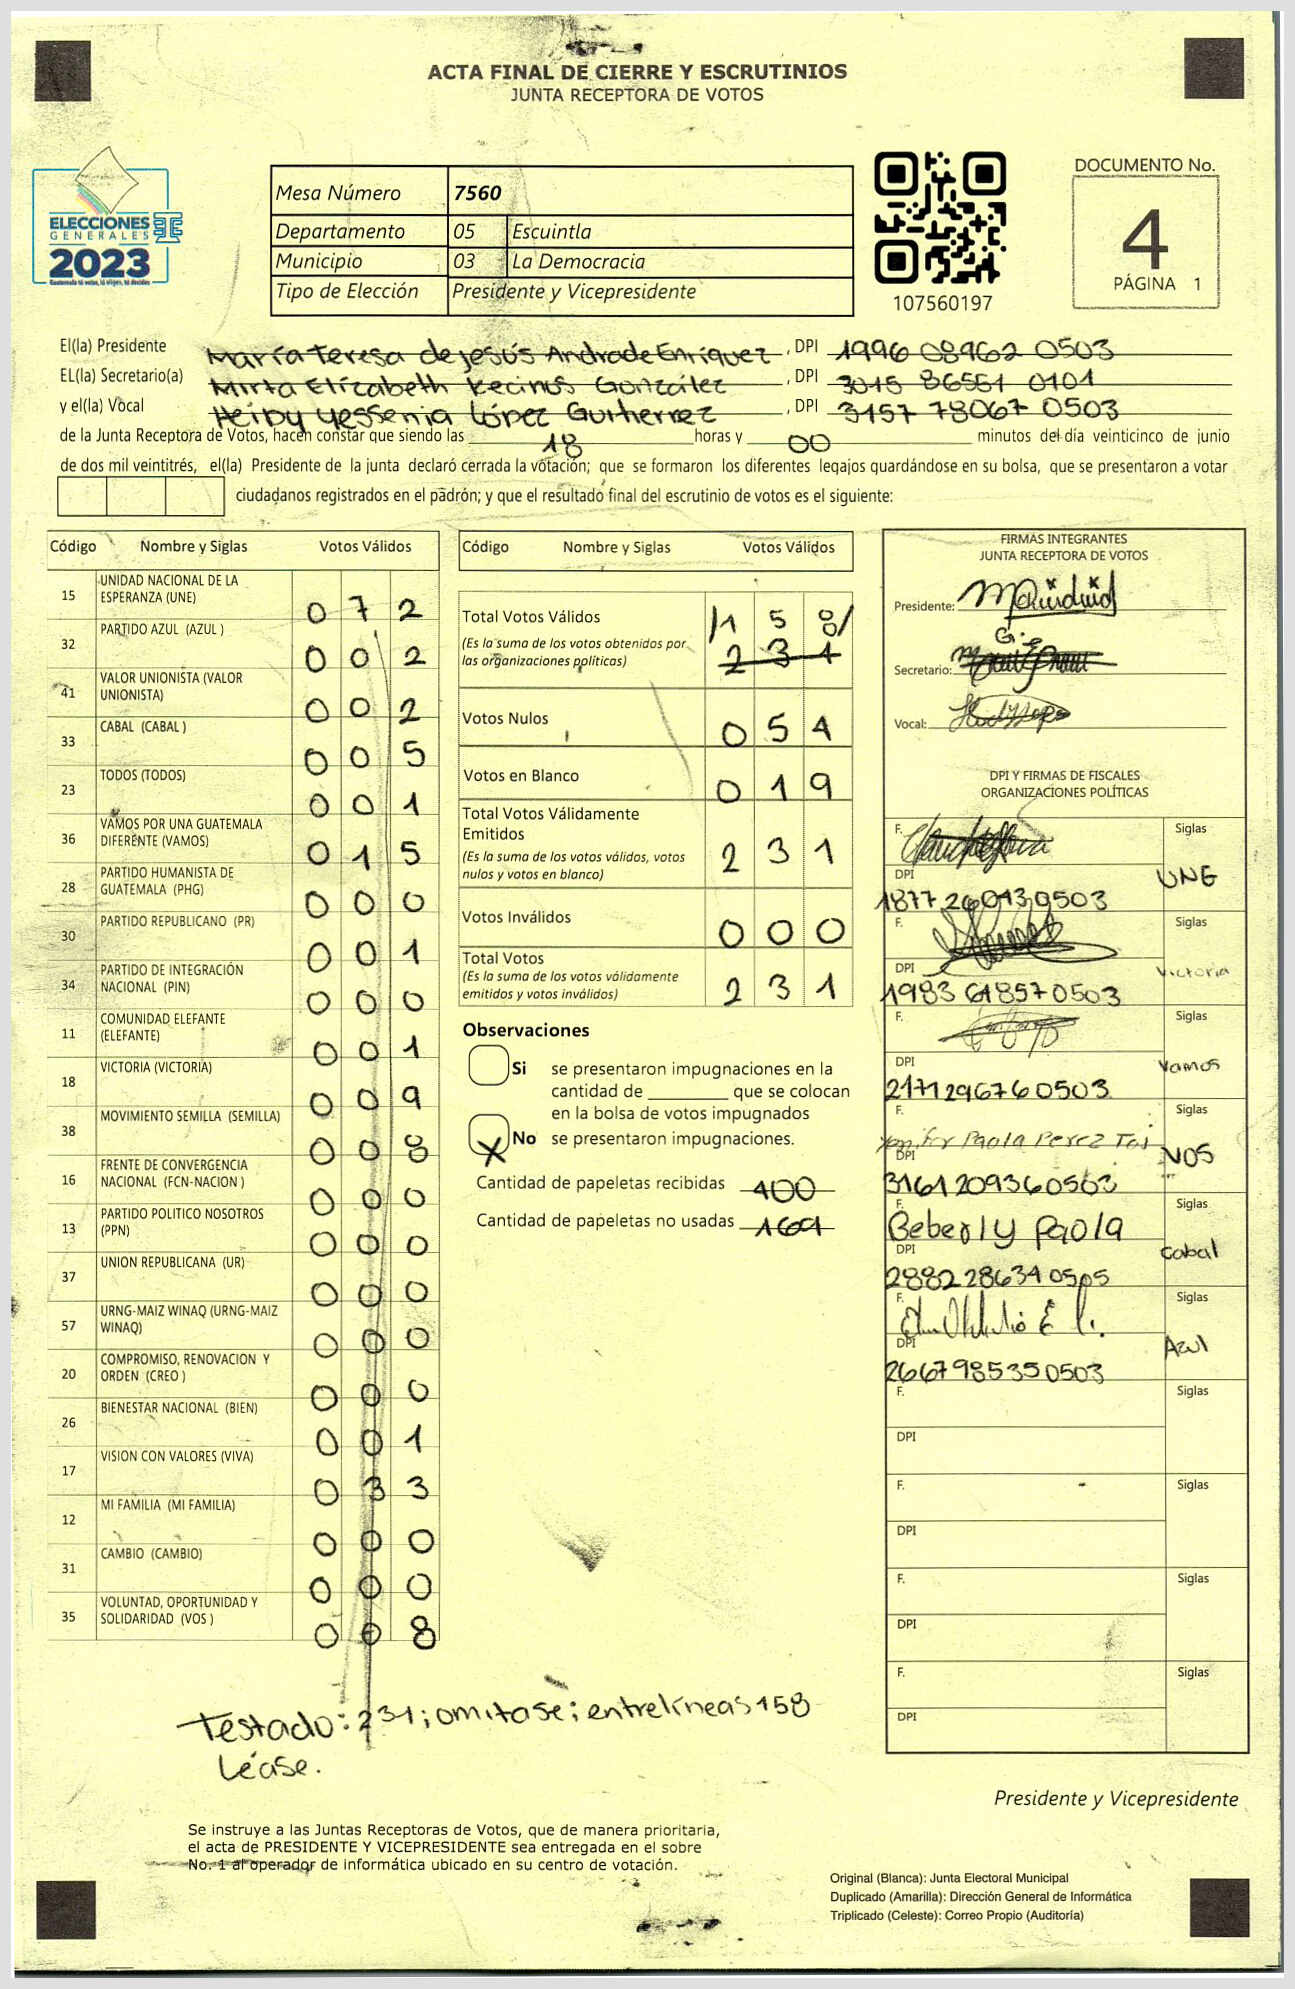 ACTA FINAL DE CIERRE Y ESCRUTINIOS
JUNTA RECEPTORA DE VOTOS
ELECCIONES
GENERALES
2023
Guatemala tú votas, tú eliges, tú decides
Mesa Número 7560
Departamento 05 Escuintla
Municipio 03 La Democracia
Tipo de Elección Presidente y Vicepresidente
107560197
DOCUMENTO No.
4
PÁGINA 1
El(la) Presidente María Teresa de Jesús Andrade Enríquez , DPI 1996 08962 0503
EL(la) Secretario(a) Mirta Elizabeth Recinos González , DPI 3015 86551 0101
y el(la) Vocal Heiby Yessenia López Guitierrez , DPI 3157 78067 0503
de la Junta Receptora de Votos, hacen constar que siendo las 18 horas y 00 minutos del día veinticinco de junio
de dos mil veintitrés, el(la) Presidente de la junta declaró cerrada la votación; que se formaron los diferentes legajos guardándose en su bolsa, que se presentaron a votar
ciudadanos registrados en el padrón; y que el resultado final del escrutinio de votos es el siguiente:
Código Nombre y Siglas Votos Válidos
15 UNIDAD NACIONAL DE LA ESPERANZA (UNE) 0 7 2
32 PARTIDO AZUL (AZUL ) 0 0 2
41 VALOR UNIONISTA (VALOR UNIONISTA) 0 0 2
33 CABAL (CABAL ) 0 0 5
23 TODOS (TODOS) 0 0 1
36 VAMOS POR UNA GUATEMALA DIFERENTE (VAMOS) 0 1 5
28 PARTIDO HUMANISTA DE GUATEMALA (PHG) 0 0 0
30 PARTIDO REPUBLICANO (PR) 0 0 1
34 PARTIDO DE INTEGRACIÓN NACIONAL (PIN) 0 0 0
11 COMUNIDAD ELEFANTE (ELEFANTE) 0 0 1
18 VICTORIA (VICTORIA) 0 0 9
38 MOVIMIENTO SEMILLA (SEMILLA) 0 0 8
16 FRENTE DE CONVERGENCIA NACIONAL (FCN-NACION ) 0 0 0
13 PARTIDO POLITICO NOSOTROS (PPN) 0 0 0
37 UNION REPUBLICANA (UR) 0 0 0
57 URNG-MAIZ WINAQ (URNG-MAIZ WINAQ) 0 0 0
20 COMPROMISO, RENOVACION Y ORDEN (CREO ) 0 0 0
26 BIENESTAR NACIONAL (BIEN) 0 0 1
17 VISION CON VALORES (VIVA) 0 3 3
12 MI FAMILIA (MI FAMILIA) 0 0 0
31 CAMBIO (CAMBIO) 0 0 0
35 VOLUNTAD, OPORTUNIDAD Y SOLIDARIDAD (VOS ) 0 0 8
Código Nombre y Siglas Votos Válidos
Total Votos Válidos /1 5 8/
(Es la suma de los votos obtenidos por
las organizaciones políticas) 2 3 1
Votos Nulos 0 5 4
Votos en Blanco 0 1 9
Total Votos Válidamente
Emitidos
(Es la suma de los votos válidos, votos
nulos y votos en blanco) 2 3 1
Votos Inválidos 0 0 0
Total Votos
(Es la suma de los votos válidamente
emitidos y votos inválidos) 2 3 1
Observaciones
Si se presentaron impugnaciones en la
cantidad de ________ que se colocan
en la bolsa de votos impugnados
X No se presentaron impugnaciones.
Cantidad de papeletas recibidas 400
Cantidad de papeletas no usadas 169
FIRMAS INTEGRANTES
JUNTA RECEPTORA DE VOTOS
Presidente:
Secretario:
Vocal:
DPI Y FIRMAS DE FISCALES
ORGANIZACIONES POLÍTICAS
F. Siglas
DPI UNE
1877 26013 0503
F. Siglas
DPI Victoria
1983 61857 0503
F. Siglas
DPI Vamos
2171 29676 0503
F. Siglas
Paola Perez
DPI VOS
3161 20936 0503
F. Siglas
Beberly Paola
DPI Cabal
2882 28634 0505
F. Siglas
DPI Azul
2667 98535 0503
F. Siglas
DPI
F. Siglas
DPI
F. Siglas
DPI
F. Siglas
DPI
Testado: 231; omitase; entrelineas 158
Léase.
Presidente y Vicepresidente
Se instruye a las Juntas Receptoras de Votos, que de manera prioritaria,
el acta de PRESIDENTE Y VICEPRESIDENTE sea entregada en el sobre
No. 1 al operador de informática ubicado en su centro de votación.
Original (Blanca): Junta Electoral Municipal
Duplicado (Amarilla): Dirección General de Informática
Triplicado (Celeste): Correo Propio (Auditoría)